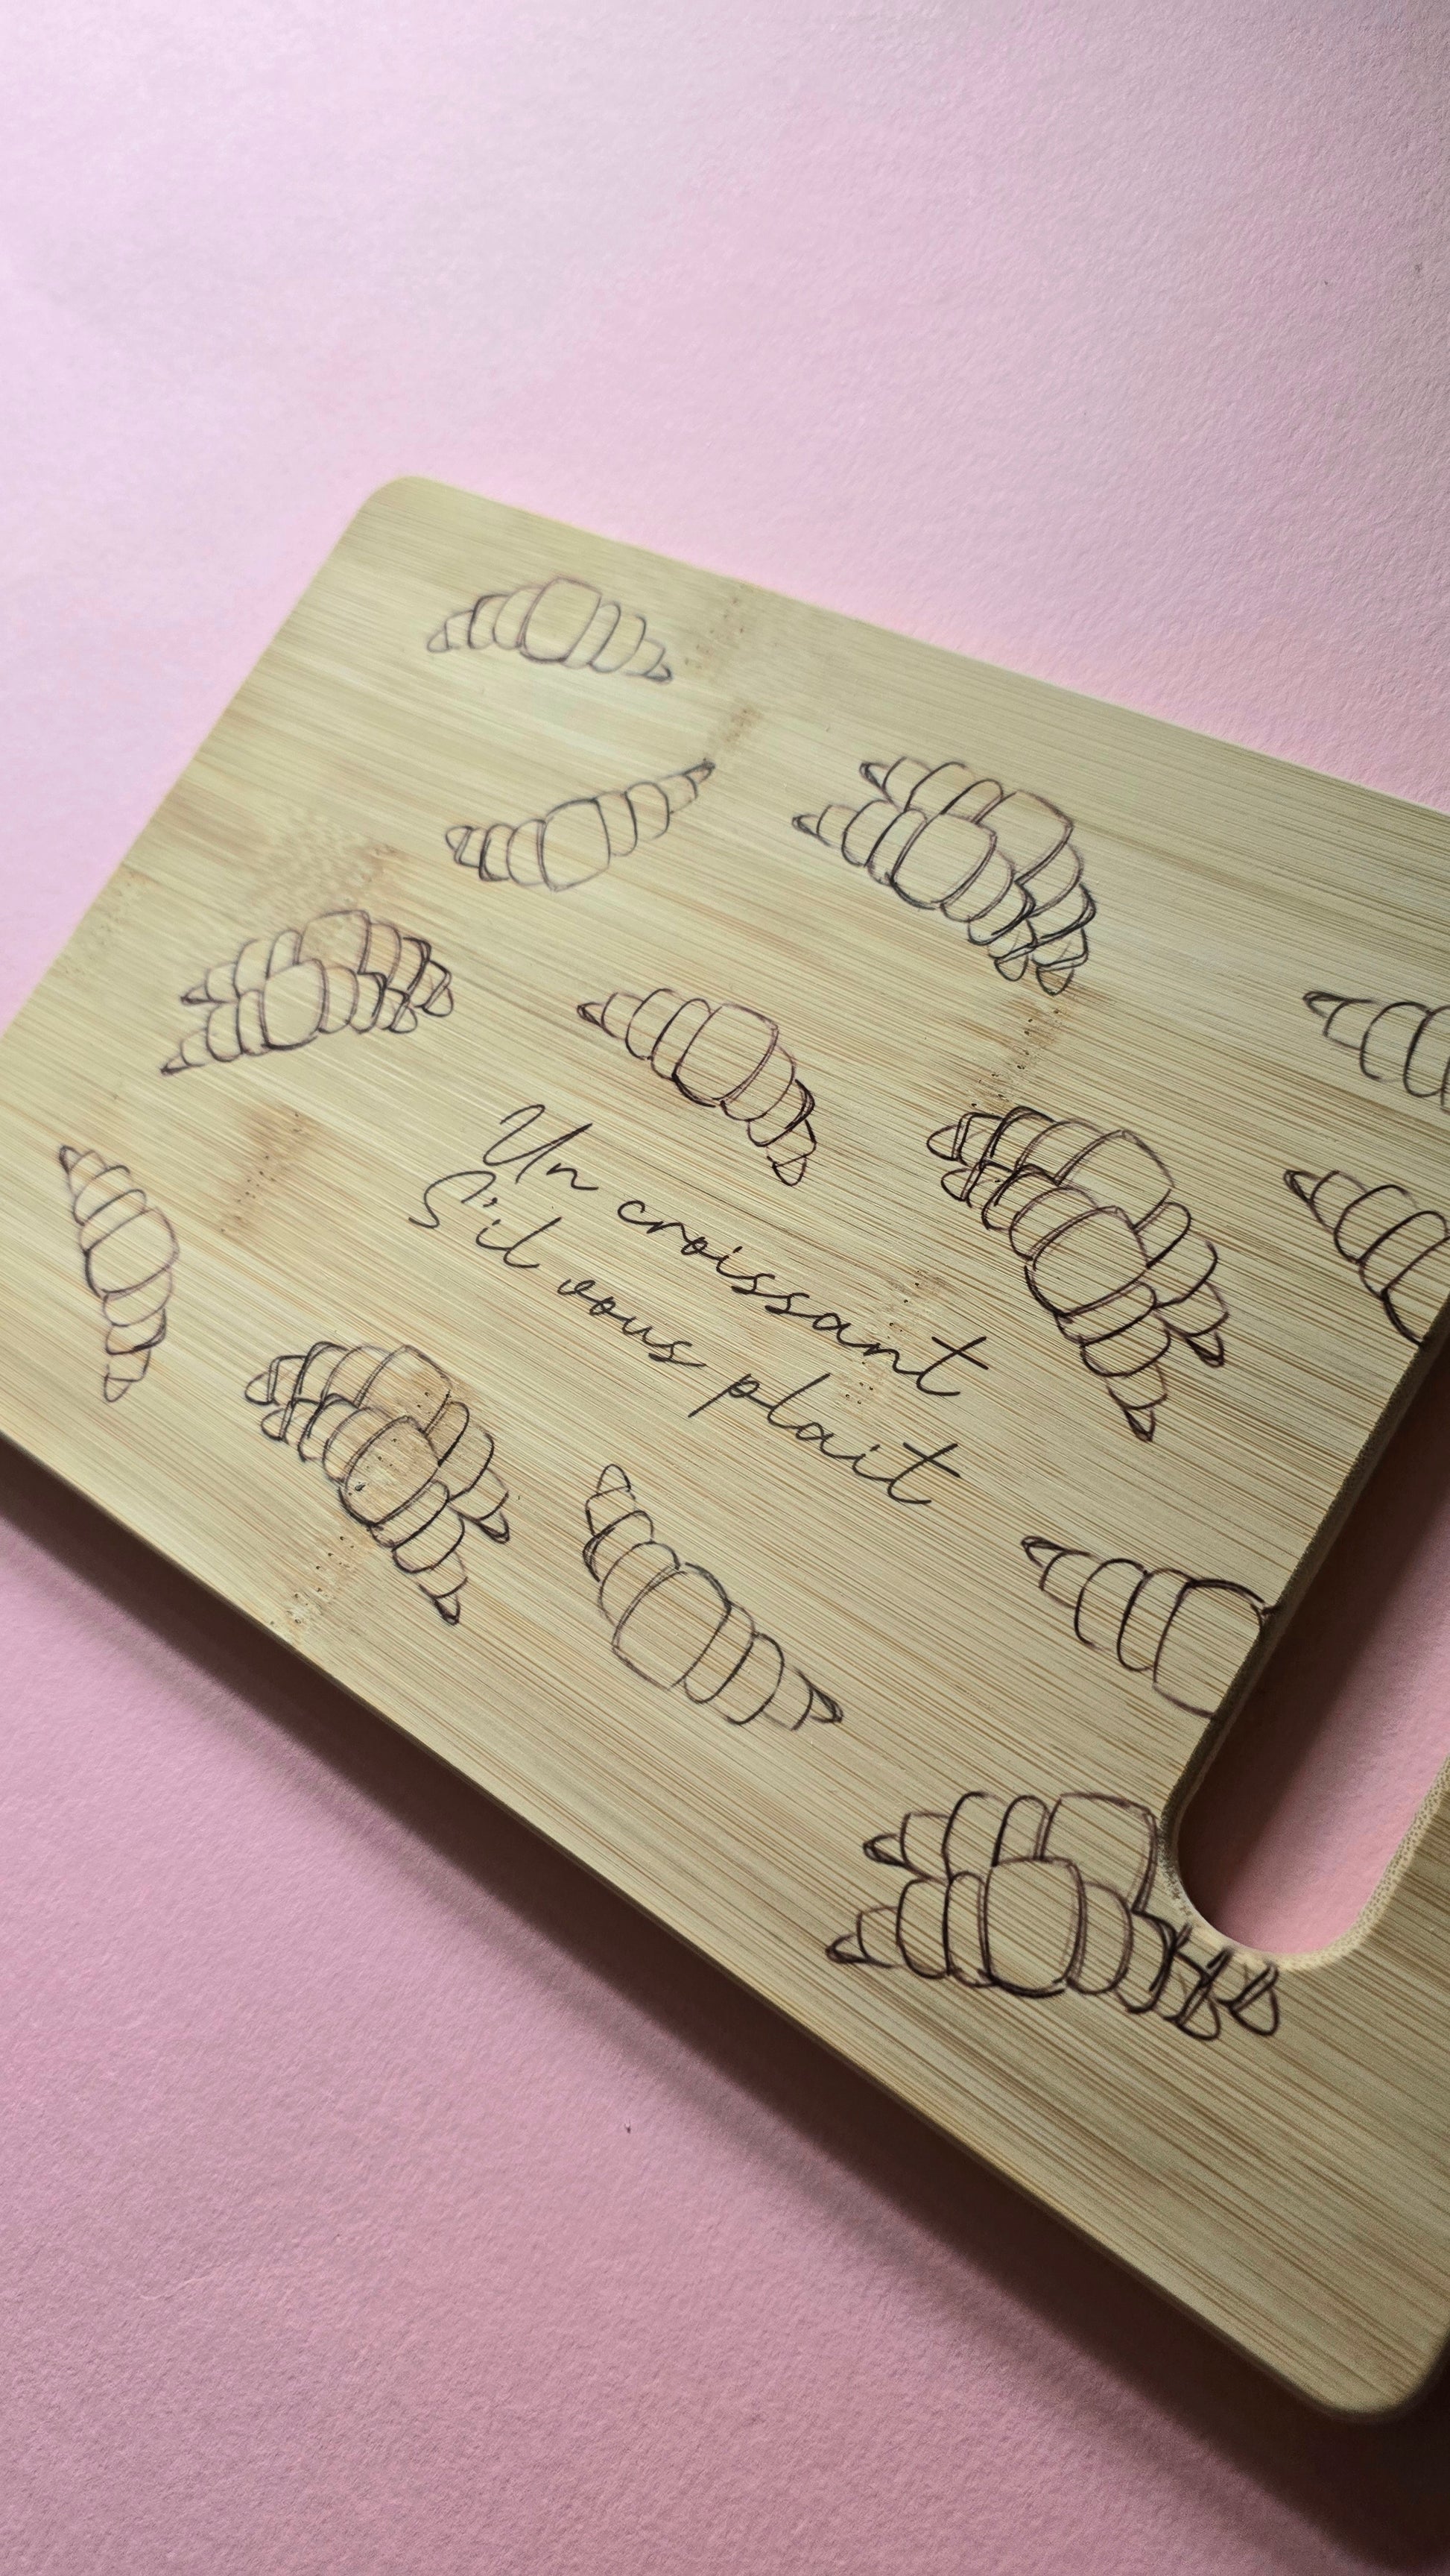 Un croissant
S'il vous plait